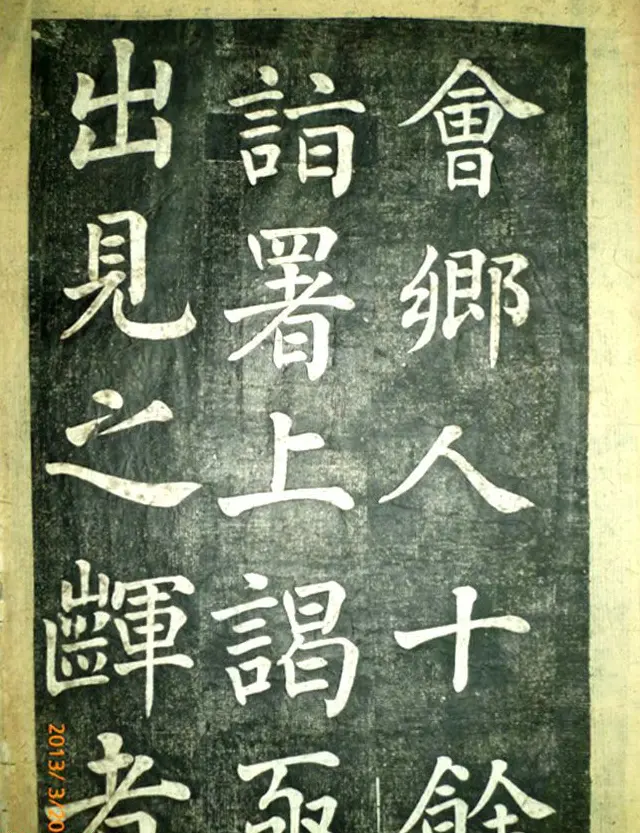 會鄉人十餘
詣署上謁亟
出見之齳者
2013/ 3/20